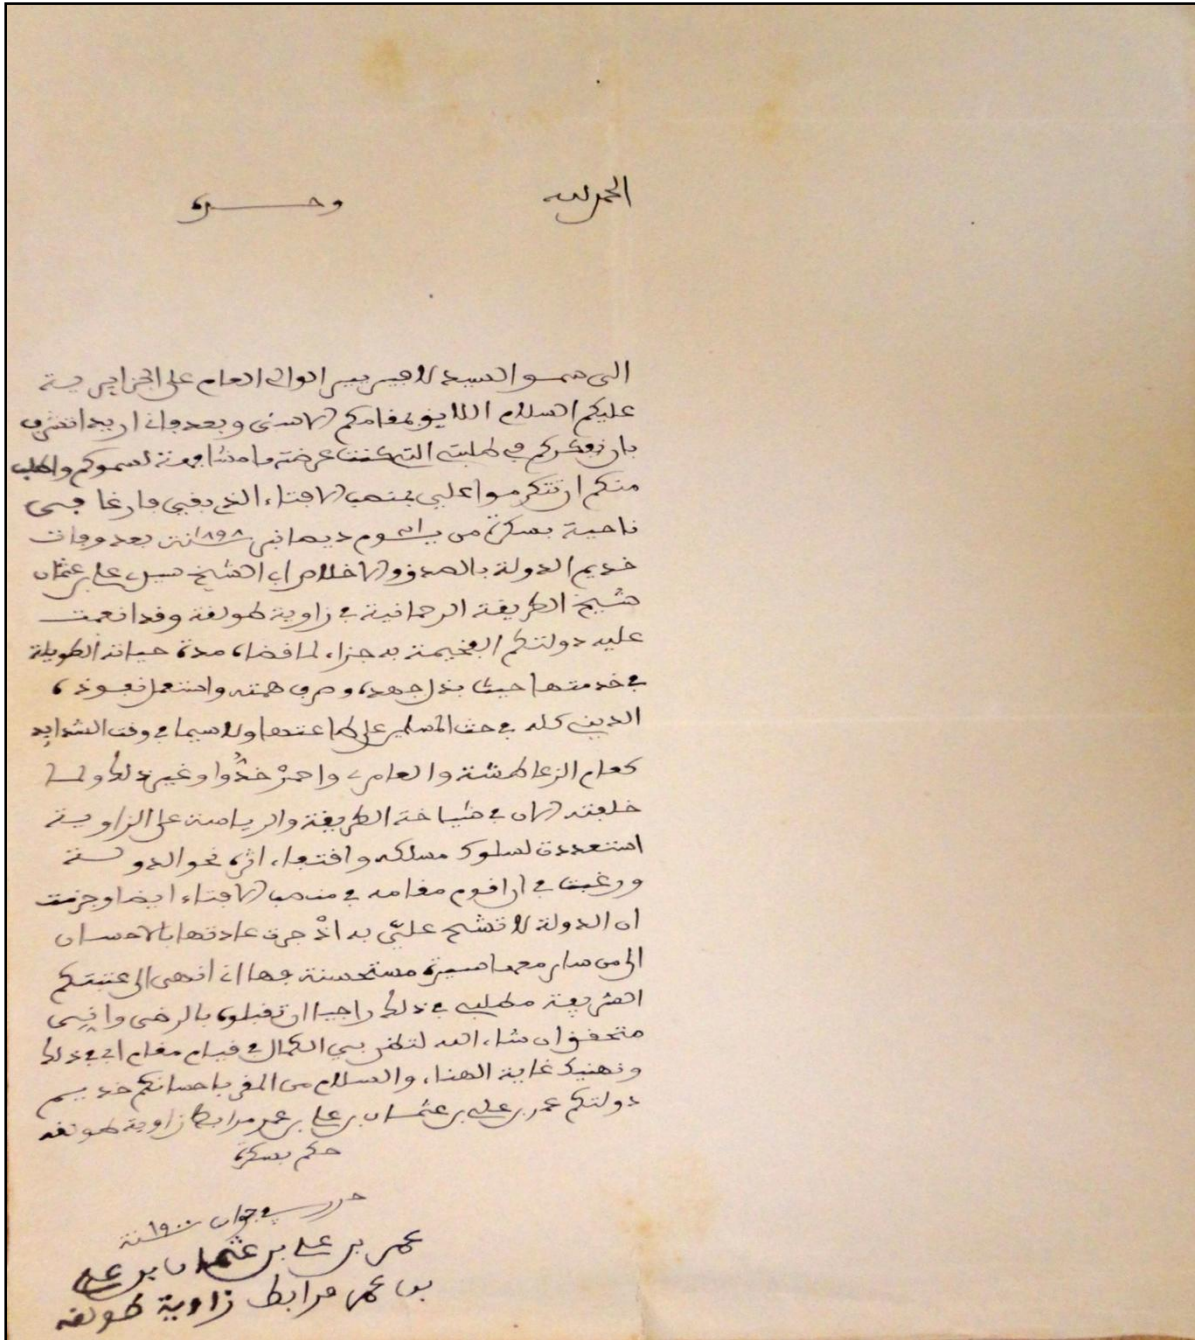 الحمد لله وحده
الى سمو السيد لافيريير الوالي العام على الجزايرية
عليكم السلام اللايق بمقامكم الاسنى وبعد فاني اريد اتشرف
بان نذكركم في طلبتي التي كنت عرضتها مشافهة لسموكم واطلب
منكم ان تتكرموا علي بمنصب الافتاء الذي بقي فارغا في
ناحية بسكرة من ١٨٩٨ بعد وفات
خديم الدولة بالصدق والاخلاص ابي الشيخ سي علي بن عثمان
شيخ الطريقة الرحمانية في زاوية طولقة وقد انعمت
عليه دولتكم الفخيمة به جزاء لما قضاه مدة حياته الطويلة
في خدمتها حيث بذل جهده وصرف همته واستعمل نفوذه
الديني كله في حث المسلمين على طاعتها ولاسيما في وقت الشدايد
كعام الزعاطشة والعامري واحمر خدو وغير ذلك ولما
خلفته الان في مشياخة الطريقة والرياسة على الزاوية
استعددت لسلوك مسلكه واقتفاء اثره نحو الدولة
ورغبت في ان اقوم مقامه في منصب الافتاء ايضا وجزمت
ان الدولة لا تشح عليّ به اذْ جرت عادتها بالاحسان
الى من سار معها سيرة مستحسنة فها اني انهى الى عتبتكم
الشريفة مطلبي في ذلك راجيا ان تقبلوه بالرضى واني
متحقق ان شاء الله لتظن بي الكمال في قيام مقام ابي في ذلك
ونهنيك غاية الهناء والسلام من المقر باحسانكم خديم
دولتكم عمر بن علي بن عثمان بن علي بن عمر مرابط زاوية طولقه
حكم بسكرة
حرر في جوان سنة ١٩٠٠
عمر بن علي بن عثمان بن علي
بن عمر مرابط زاوية طولقه